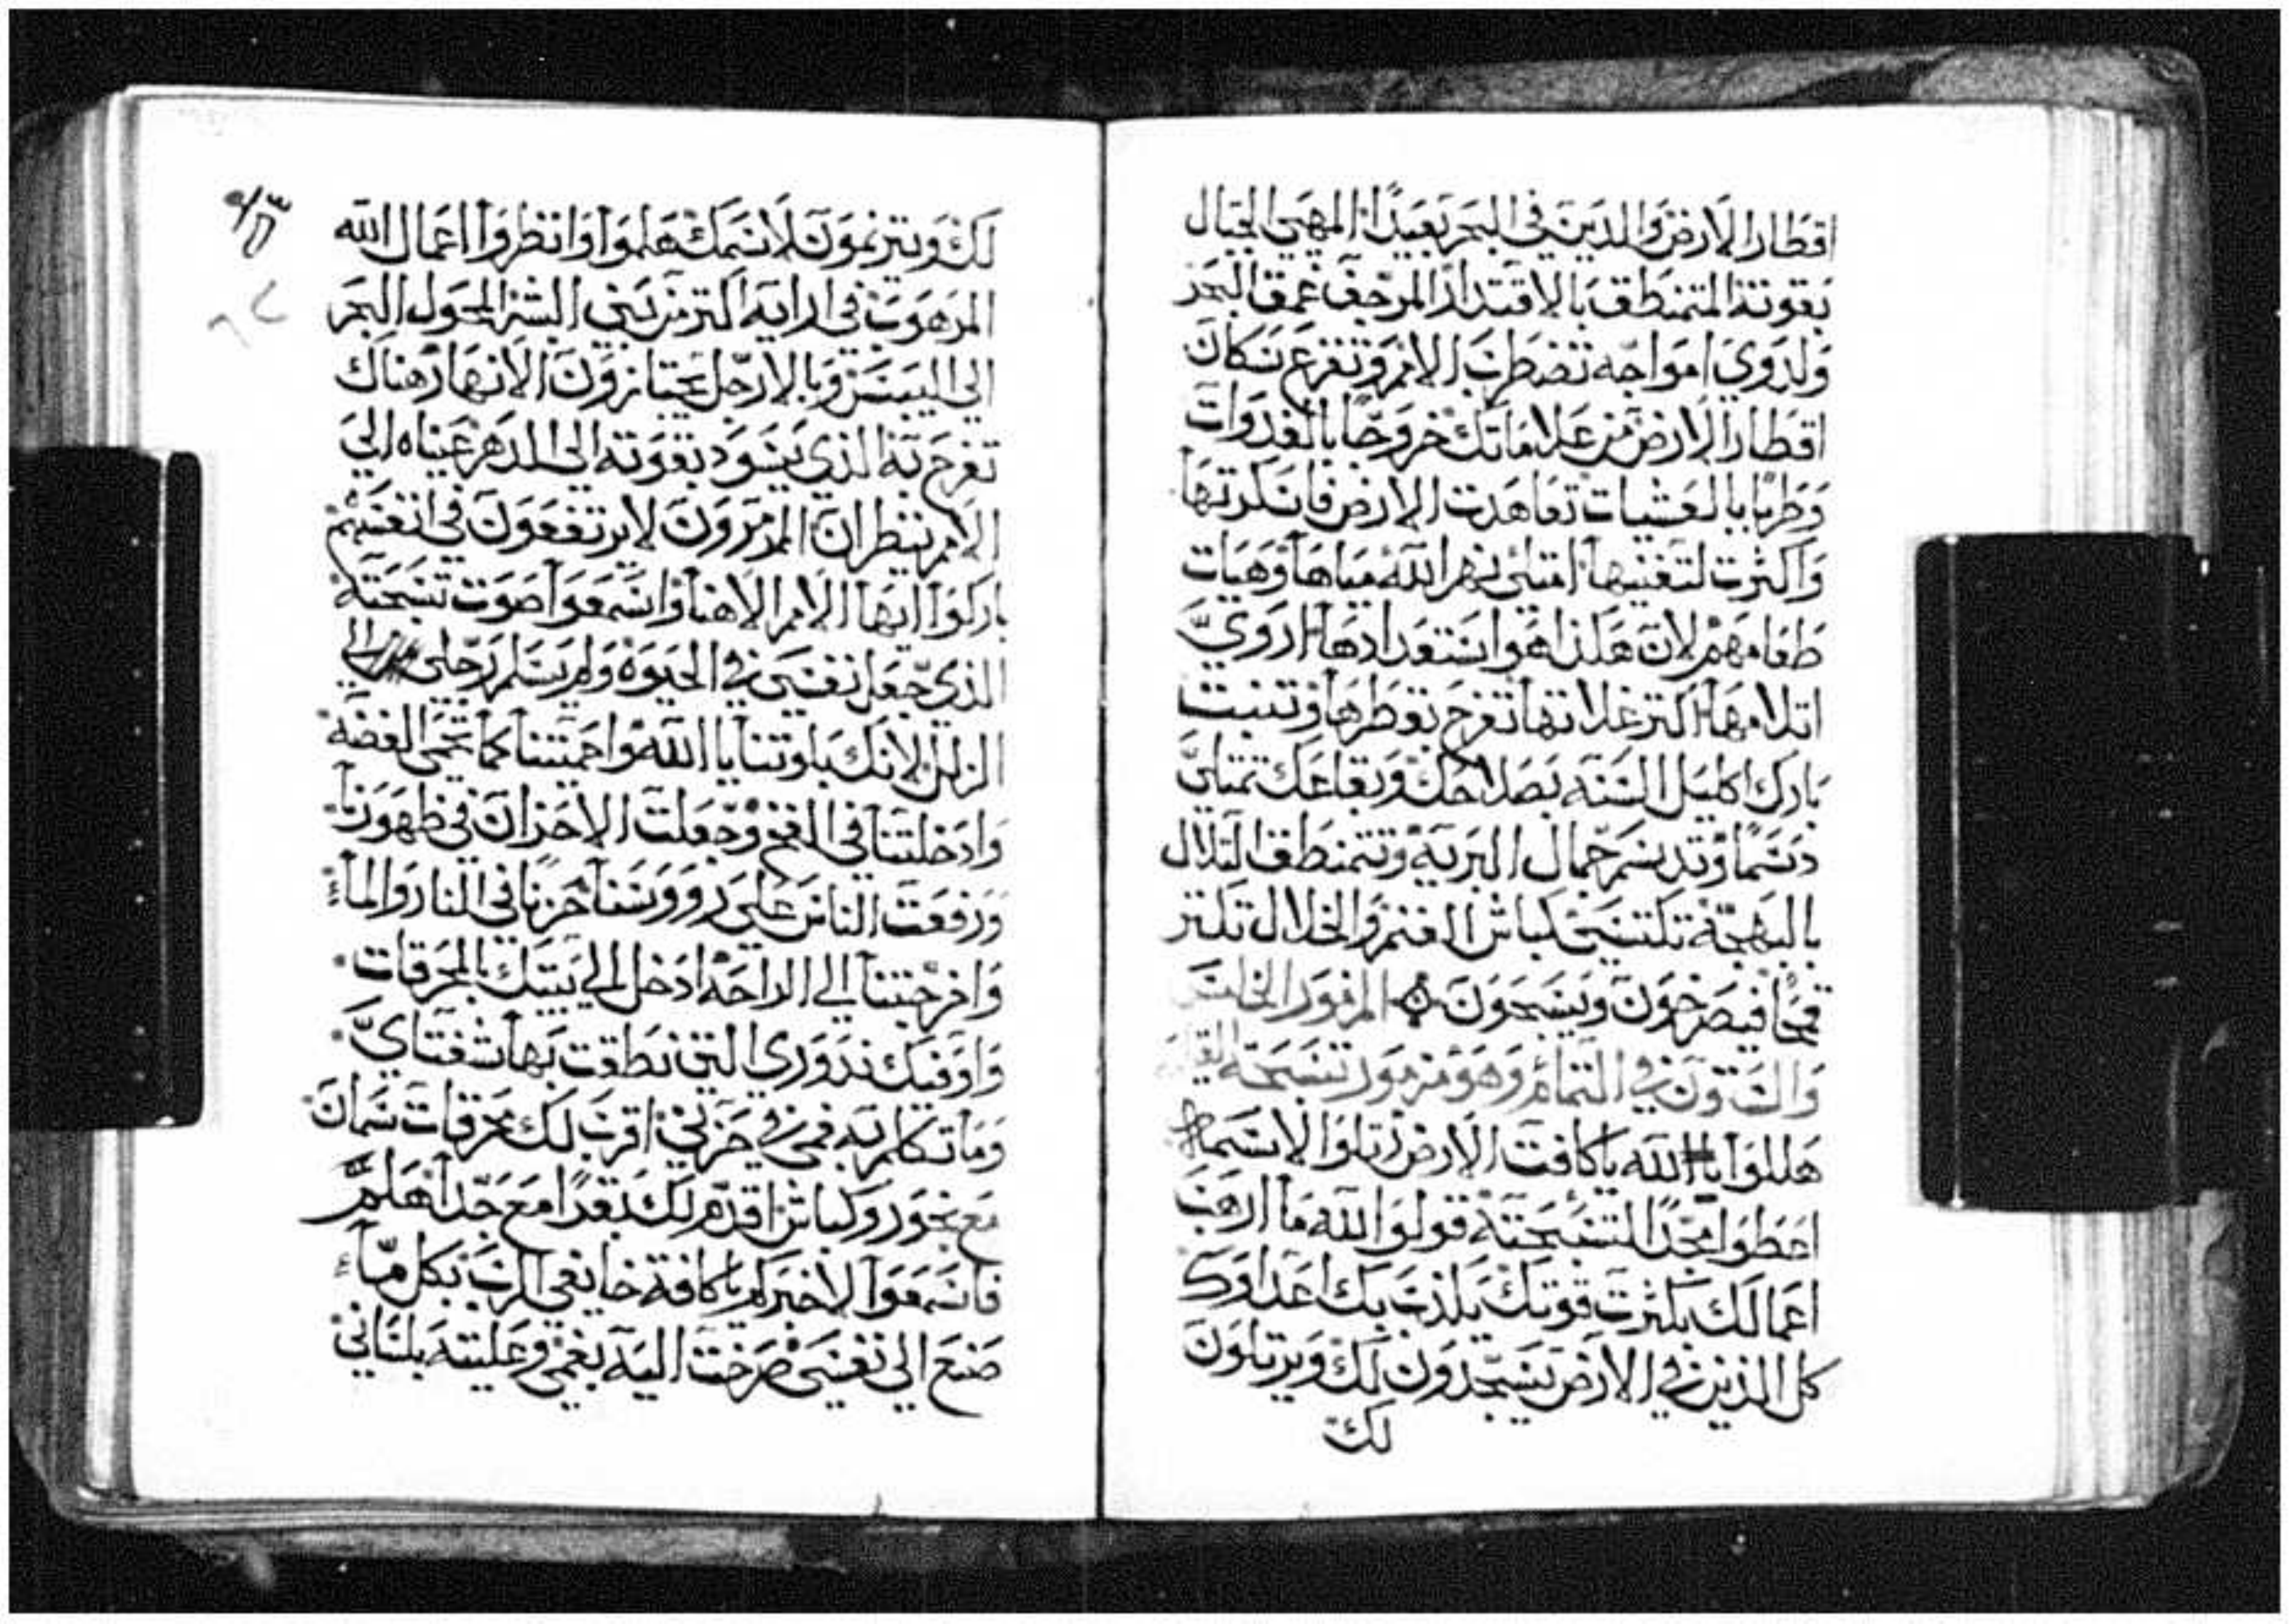 اقطار الارض والذين في البحر بعيدًا المهيي الجبال
بقوته المتمنطق بالاقتدار المرجف عمق البحر
ولدوي امواجه تضطرب الامم وتفزع سكان
اقطار الارض من علاماتك خروجًا بالغدوات
وطربًا بالعشيات تعاهدت الارض فاسكرتها
واكثرت لتغنيها امتلئ نهر الله مياها وهيات
طعامهم لان هكذا هو استعدادها اروي
اتلامها اكثر غلاتها تفرح بقطرها وتنبت
بارك اكليل السنه بصلاحك وبقاعك تمتلي
دسمًا وتدسم جمال البريه وتتمنطق التلال
بالبهجة تكتسي كباش الغنم والخلال تكثر
قمحًا فيصرخون ويسبحون المزمور الخامس
والستون في التمام وهو مزمور تسبحة القيامه
هللوا لله يا كافت الارض رتلوا لاسمه
اعطوا مجدًا لتسبحته قولوا لله ما ارهب
اعمالك بكثرت قوتك يكذب بك اعداوك
كل الذين في الارض يسجدون لك ويرتلون
لك
لك ويترنمون لاسمك هلموا وانظروا اعمال الله
المرهوب في ارايه اكثر من بني البشر المحول البحر
الى اليبس وبالارجل يجتازون الانهار هناك
نفرح به الذي يسود بقوته الى الدهر عيناه الي
الامم ينظران المرمرون لا يرتفعون في انفسهم
باركوا ايها الامم الاهنا واسمعوا صوت تسبحته
الذي جعل نفسي في الحيوة ولم يسلم رجلي الي
الزلل لانك بلوتنا يا الله واحميتنا كما تحمى الفضة
وادخلتنا في الفخ وجعلت الاحزان في ظهورنا
ورفعت الناس على رووسنا جزنا في النار والماء
واخرجتنا الي الراحة ادخل الي بيتك بالمحرقات
واوفيك نذوري التي نطقت بها شفتاي
وما تكلم به فمي في حزني اقرب لك محرقات سمان
مع بخور وكباش اقدم لك بقرًا مع جدا هلم
فاسمعوا لاخبركم يا كافة خايفي الرب بكل ما
صنع الي نفسي صرخت اليه بفمي وعليته بلساني